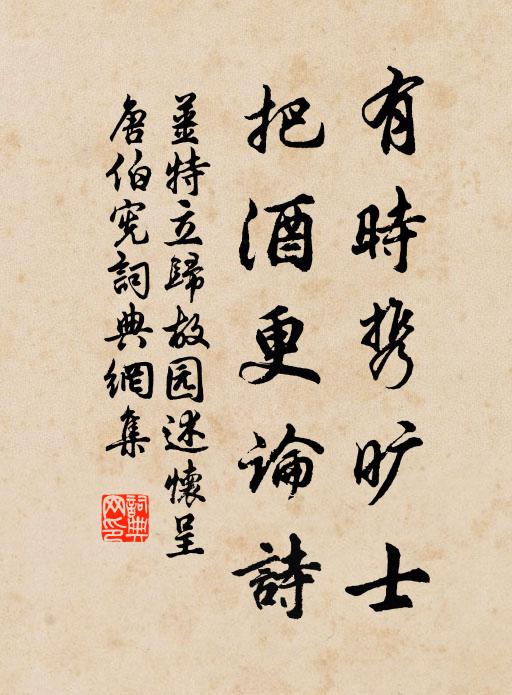 有時携旷士
把酒更論詩
姜特立歸故园述懷呈
唐伯宪詞典網集
詞典网印